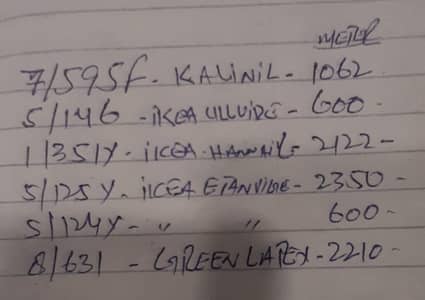 METER
7/595F - KALINIL - 1062
5/146 - iKEA ULLVIDE - 600 -
1/351Y - iKEA - HANNAIL - 2122 -
5/125Y - iKEA ETANVIDE - 2350 -
5/124Y - " " 600 -
8/631 - GREEN LAPEX - 2210 -